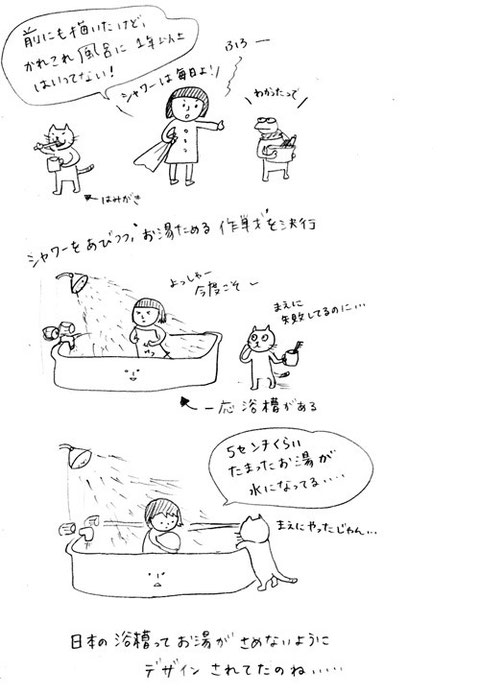 前にも描いたけど、
かれこれ風呂に1年以上
はいってない!
ふろー
シャワーは毎日よ!
わかったって
はみがき
シャワーをあびつつ、"お湯ためる作戦"を決行
よっしゃー
今度こそー
まえに
失敗してるのに…
一応浴槽がある
5センチくらい
たまったお湯が
水になってる……
まえにやったじゃん…
日本の浴槽ってお湯がさめないように
デザインされてたのね……